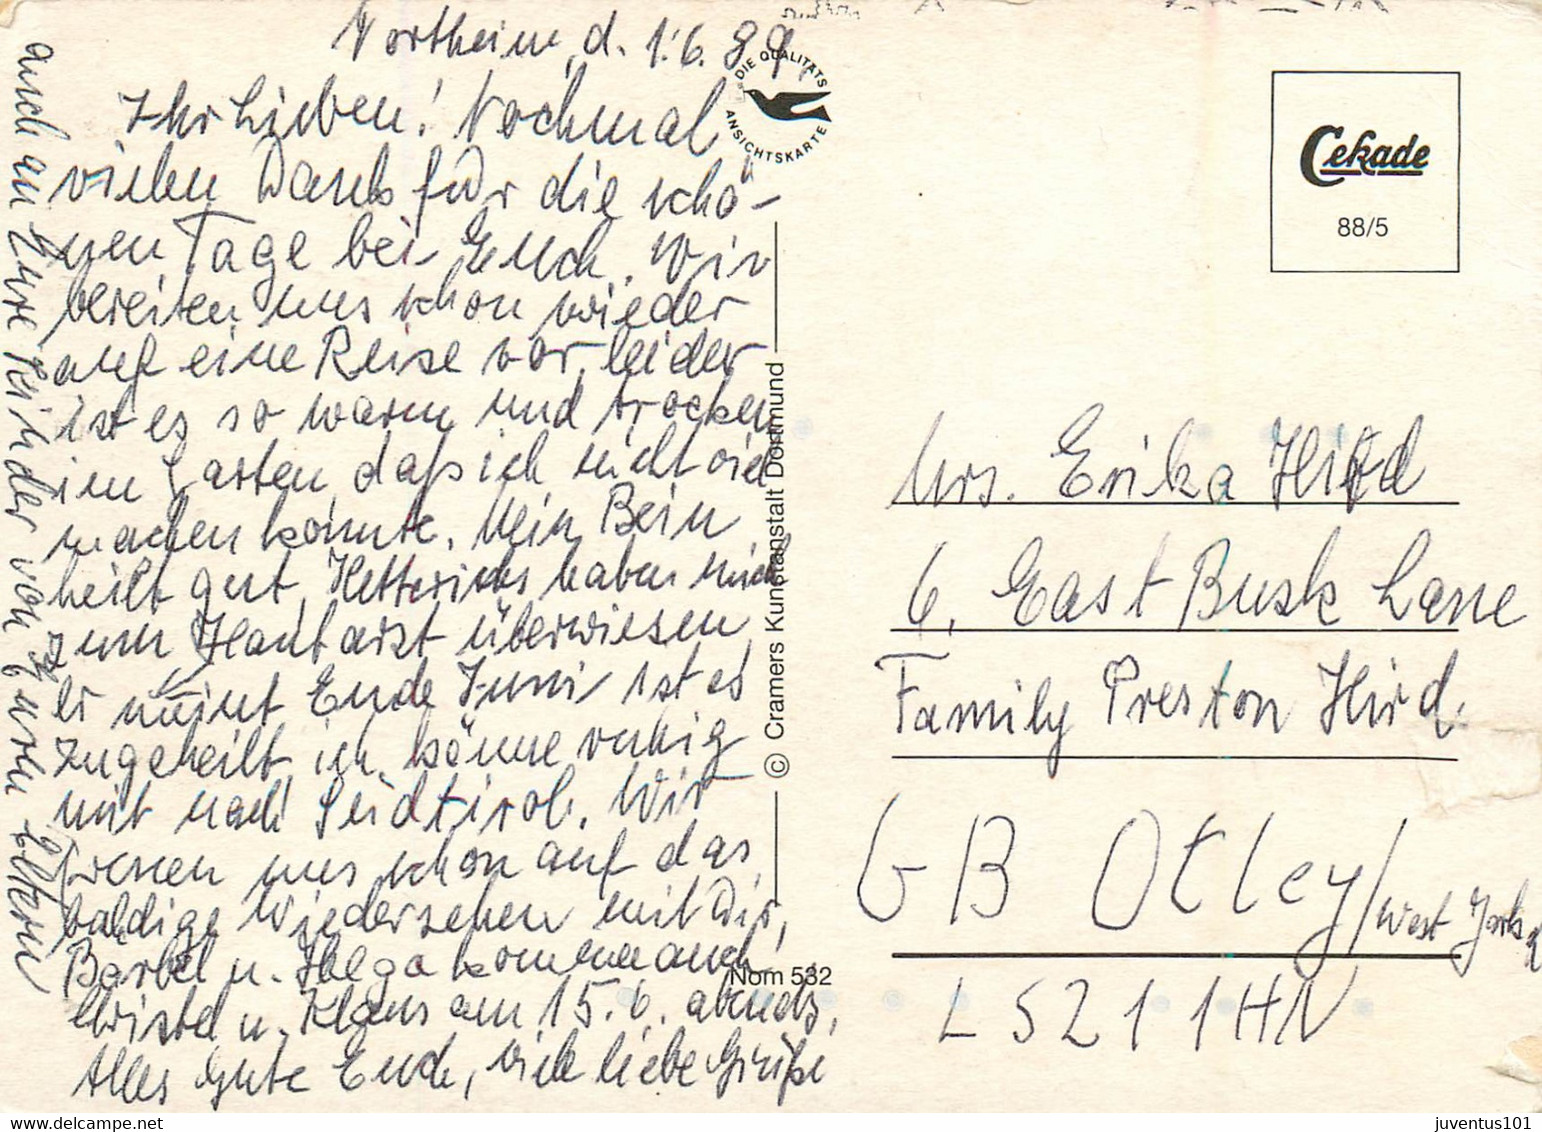 Northeim, d. 1.6.89.
Ihr Lieben! Nochmal
vielen Dank für die schö-
nen Tage bei Euch. Wir
bereiten uns schon wieder
auf eine Reise vor, leider
ist es so warm und trocken
im Garten, daß ich nicht viel
machen könnte. Mein Bein
heilt gut, Hetterichs haben mich
zum Hautarzt überwiesen,
er meint Ende Juni ist es
zugeheilt, ich könne ruhig
mit nach Südtirol. Wir
freuen uns schon auf das
baldige Wiedersehen mit Dir,
Bärbel u. Helga kommen auch
Christel u. Klaus am 15.6. abends,
Alles Gute Euch, viele liebe Grüße
auch an Eure Kinder von Euren Eltern
DIE QUALITÄTS
ANSICHTSKARTE
© Cramers Kunstanstalt Dortmund
Nom 532
Cekade
88/5
Mrs. Erika Hird
6, East Busk Lane
Family Preston Hird.
GB Otley/West Yorksh
LS21 1HN
juventus101